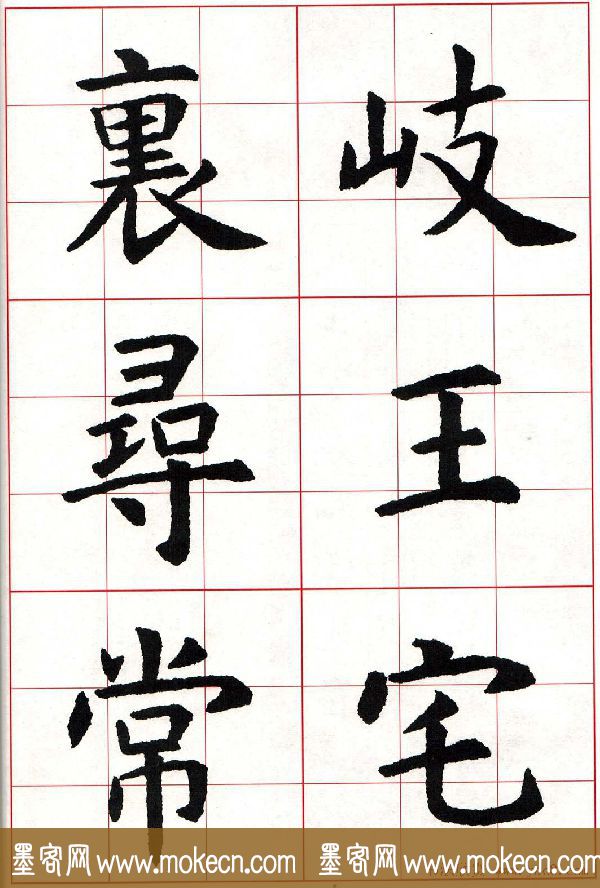 岐王宅
裏尋常
墨客网 www.mokecn.com 墨客网 www.mokecn.com